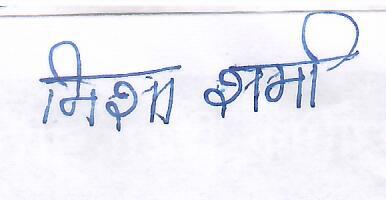 निशा शर्मा